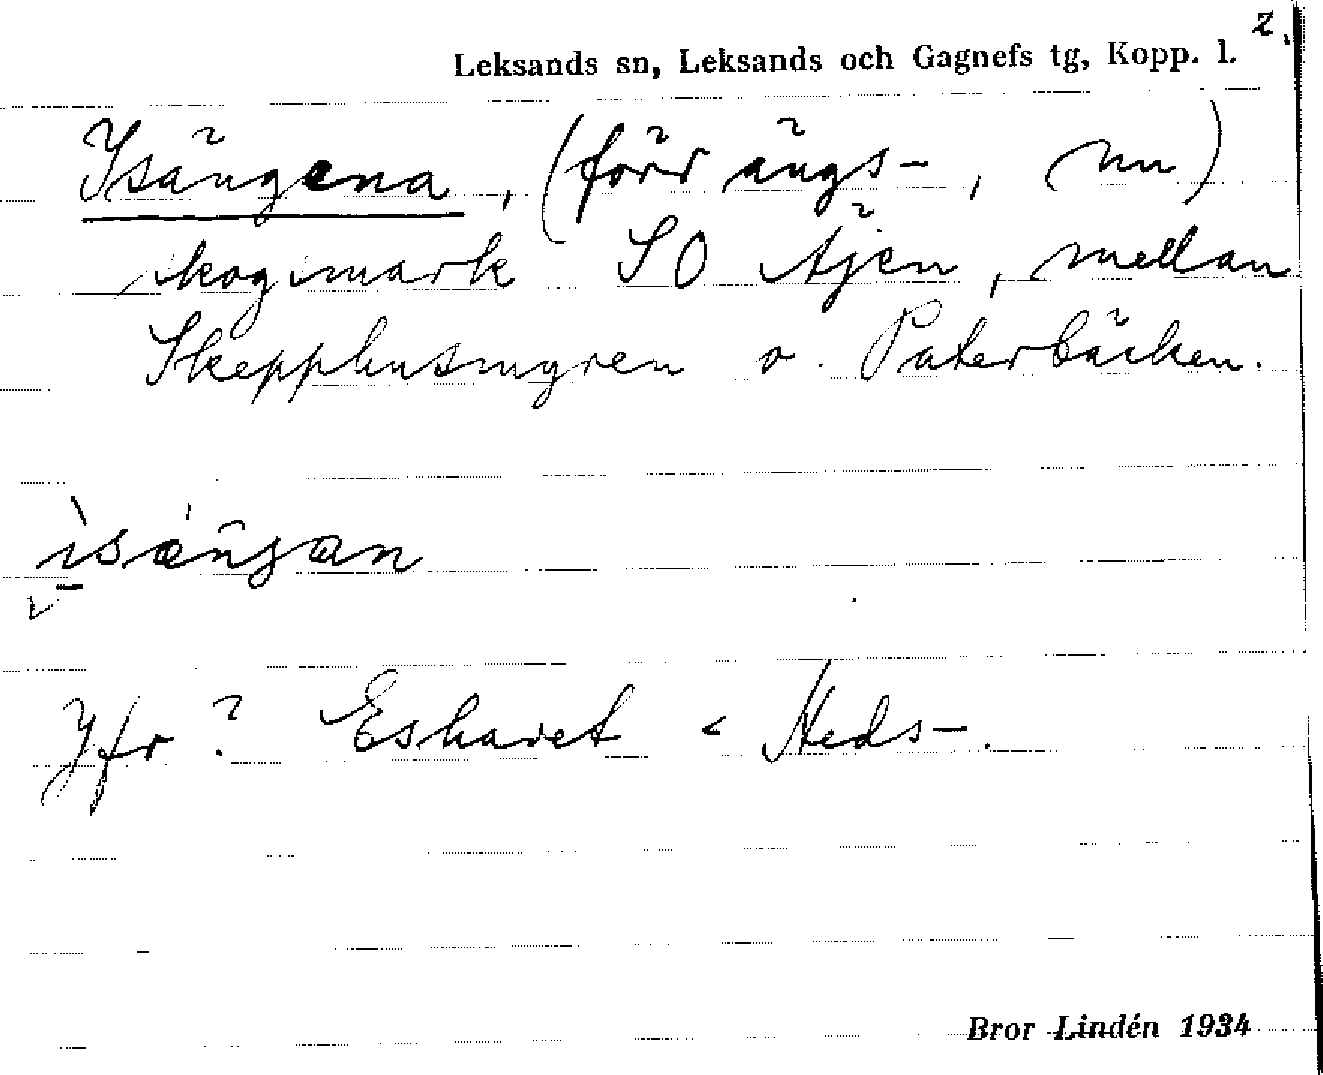 2.
Leksands sn, Leksands och Gagnefs tg, Kopp. l.
Isängena, (förr ängs-, nu)
skogsmark SO Äjen, mellan
Skepphusmyren o. Paterbäcken.
ìsáŋgan
Jfr? Esharet < Heds-.
Bror Lindén 1934